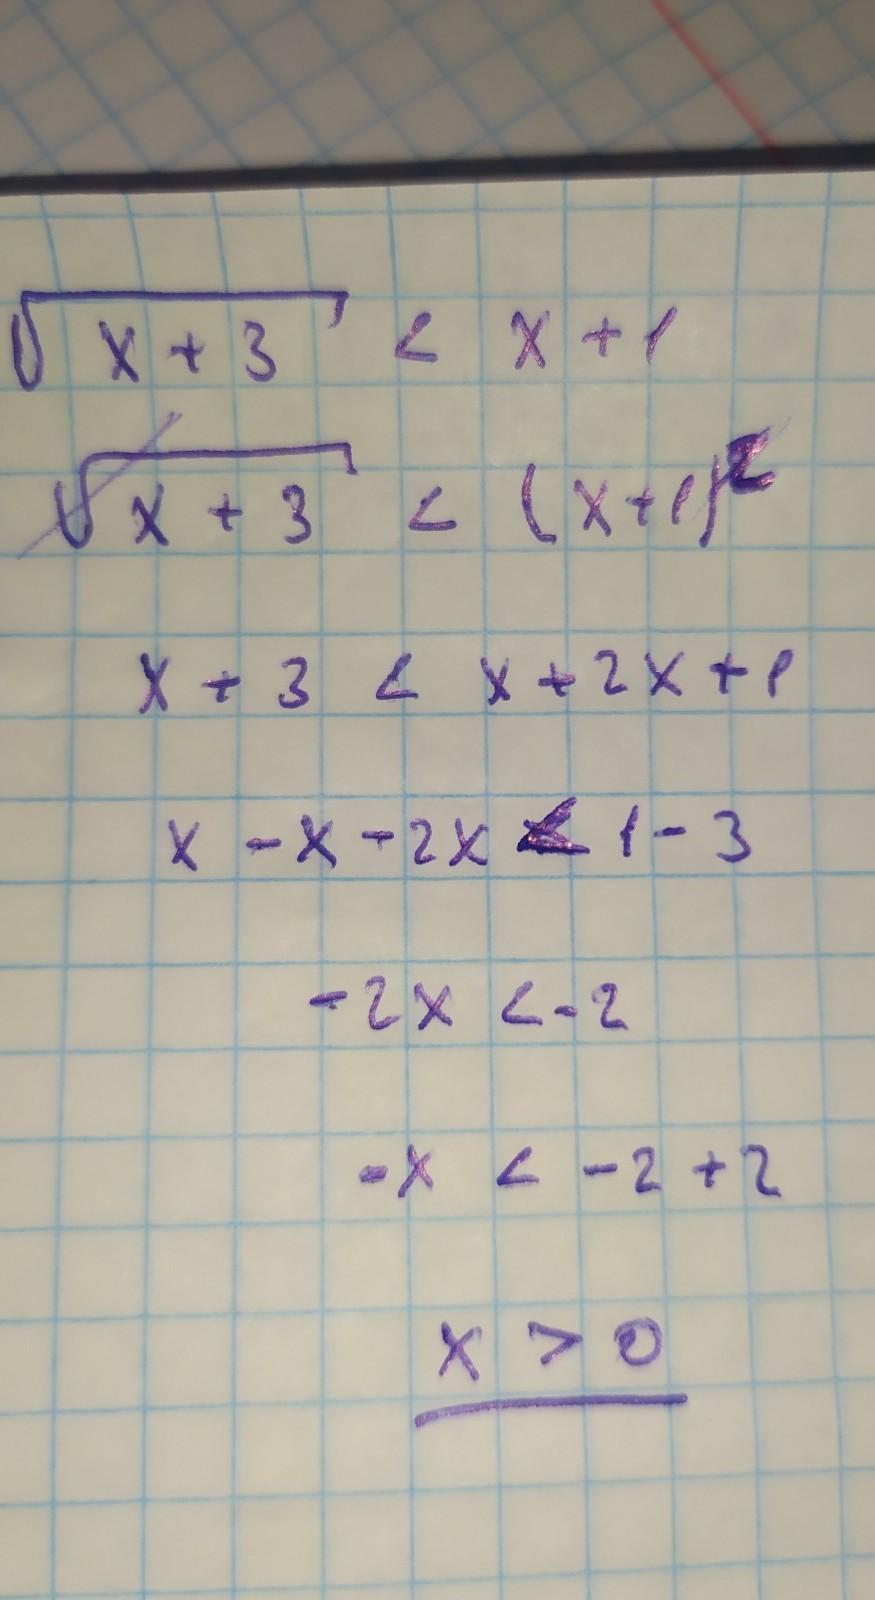 √(x + 3) < x + 1
√(x + 3) < (x+1)²
x + 3 < x + 2x + 1
x - x - 2x < 1 - 3
-2x < -2
-x < -2 + 2
x > 0